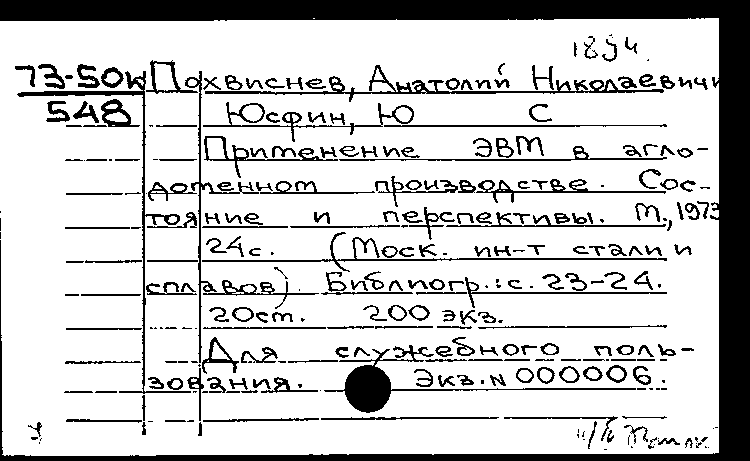 1894.
73-50к Похвиснев, Анатолий Николаевич и
548 Юсфин, Ю С
Применение ЭВМ в агло-
доменном производстве. Сос-
тояние и перспективы. М., 1973
24с. (Моск. ин-т стали и
сплавов). Библиогр.: с. 23-24.
20см. 200 экз.
Для служебного поль-
зования. Экз. N 000006.